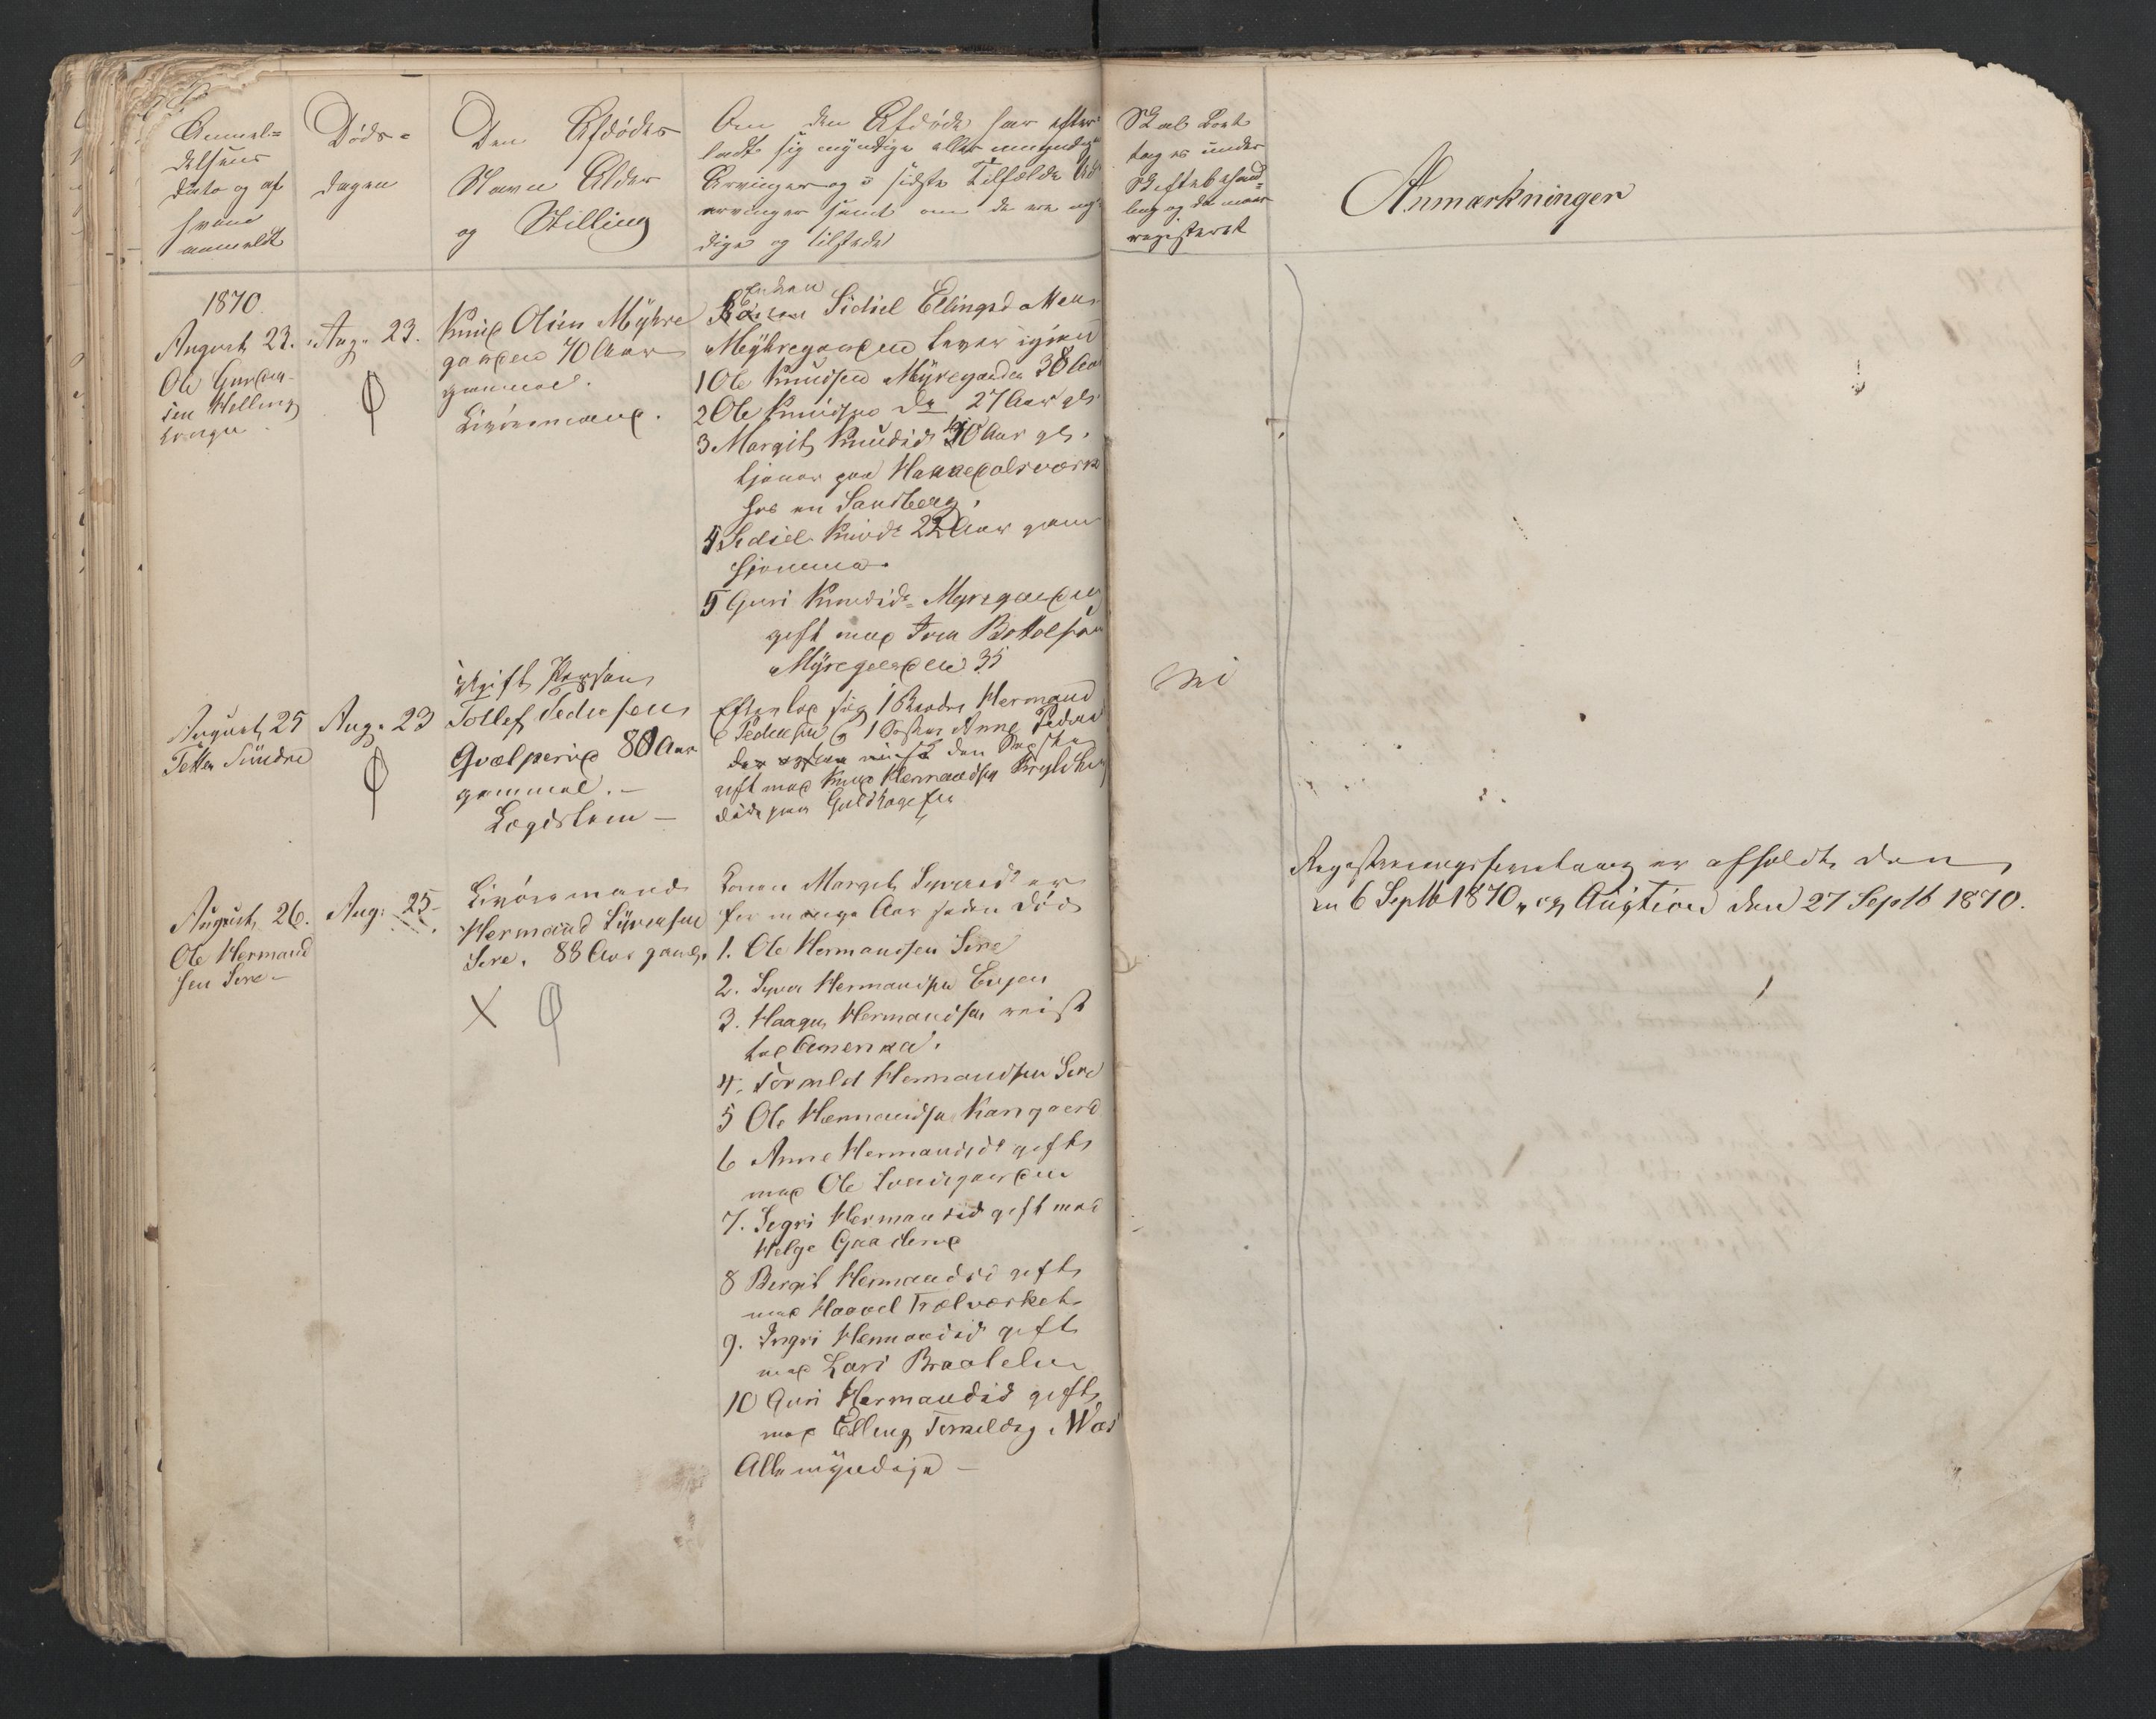 Anmel=
delsens
Dato og af
hvem
anmeldt
Døds=
dagen
Den Afdødes
Navn Alder
og Stilling
Om den Afdøde har efter
ladt sig myndige eller umyndige
Arvinger og i sidste Tilfælde
arvinger samt om de ere myn
dige og tilstede
Skal Boet
tages under
Skiftebehand=
ling og da naar
registeret
Anmærkninger
1870.
August 23.
Ole
sen Helling
Aug. 23.
Knud Olsen Myhre
garden 70 Aar
gammel.
Livøremand.
Enken
Sidsel Ellingsdatter
Myhregarden lever igjen
1 Ole Knudsen Myregarden 38 Aar
2 Ole Knudsen do 27 Aar gl.
3 Margit Knudsd 30 Aar gl.
tjener paa Hakkedalsværk
hos en Sandberg.
4 Sidsel Knudsd 22 Aar gam
hjemme.
5 Guri Knudsd Myregarden
gift med Iver Bottolfsen
Myregarden 35
August 25
Aug. 23
ugift Person
Tollef Pedersen
Qvælperud 80 Aar
gammel. -
Lægdslem -
Efterlod sig 1 Broder Hermand
Pedersen og 1 Søster Anne Peders
gift med Knud Hermandsen
døde paa Guldhagen
nei
August 26.
Ole Hermand
sen Sire -
Aug. 25.
Livøremand
Hermand Syversen
Sire. 83 Aar gaml.
Konen Margit Syversd er
for mange Aar siden død
1. Ole Hermandsen Sire
2. Syver Hermandsen Eugen
3. Haagen Hermandsen reist
til Amerika.
4. Torkild Hermandsen Sire
5 Ole Hermandsen Kangaard
6 Anne Hermandsd gift
med Ole
7. Sigri Hermandsd gift med
Helge Gaaderud
8 Bergit Hermandsd gift
med Haavel Trælværket
9. Ingri Hermandsd gift
med Lars Braatelien
10 Guri Hermandsd gift
med Elling Torkeldsg.
Alle myndige -
Registreringsforretning er afholdt den
6 Septb 1870 og Auction den 27 Septb 1870.